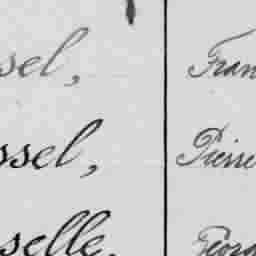 sel, Fran
ssel, Pierre
selle, Georg